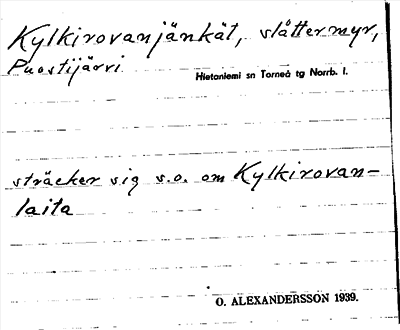 Kylkirovanjänkät, slåttermyr,
Puostijärvi
Hietaniemi sn Torneå tg Norrb. l.
sträcker sig s.o. om Kylkirovan-
laita
O. ALEXANDERSSON 1939.